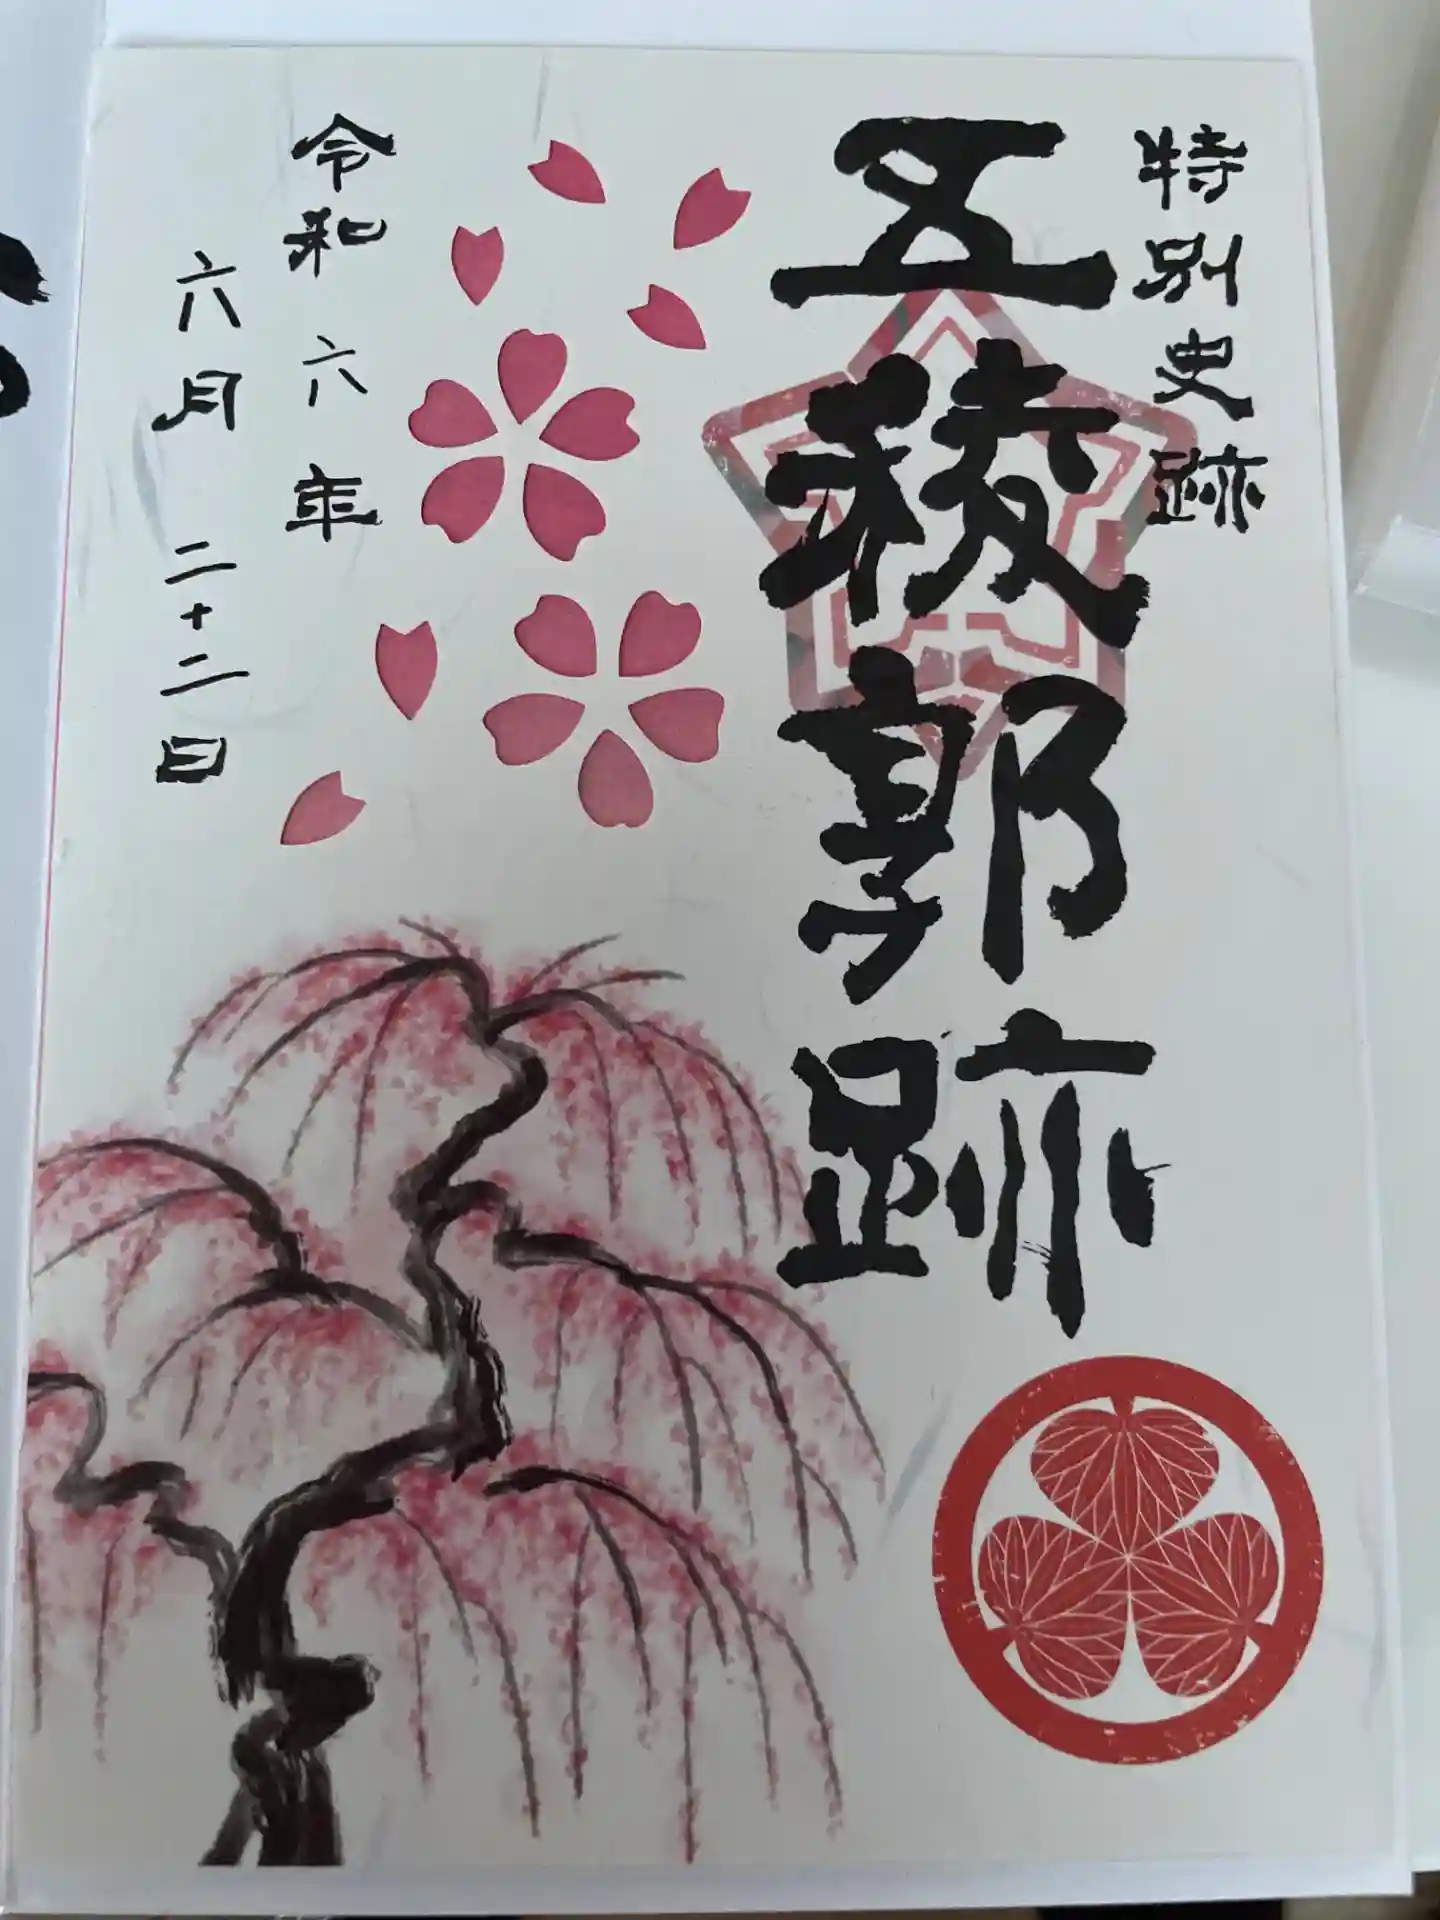 特別史跡
五稜郭跡
令和六年
六月二十二日